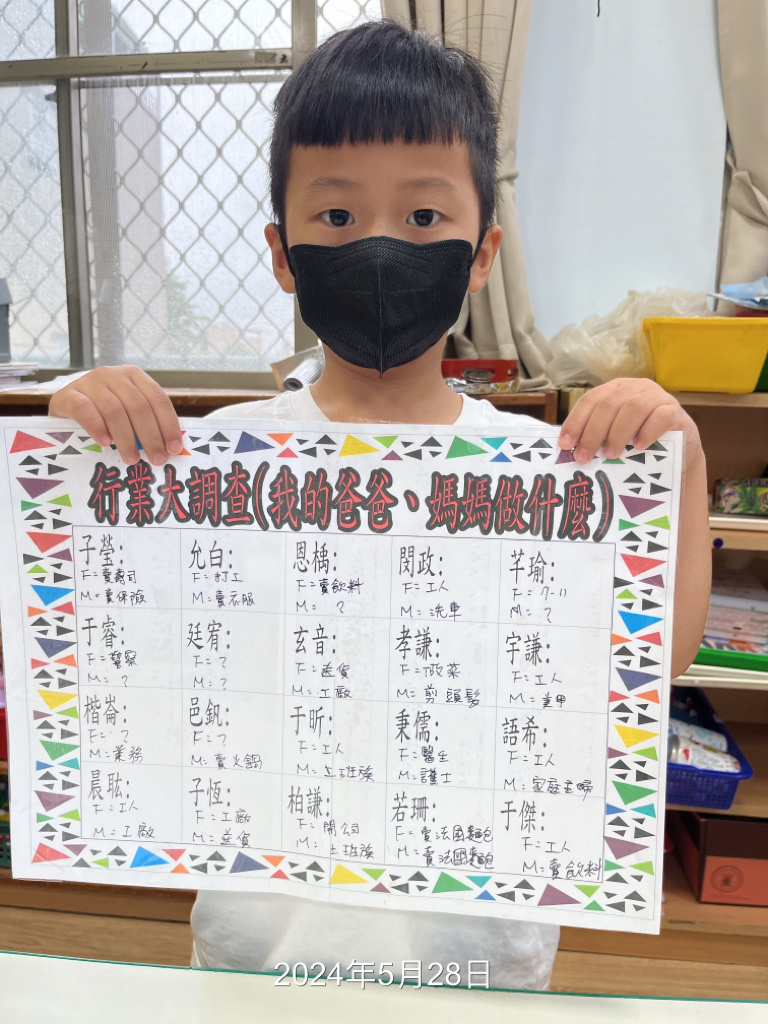 行業大調查(我的爸爸、媽媽做什麼)
子瑩:
F=賣壽司
M=賣保險
允白:
F=打工
M=賣衣服
恩楀:
F=賣飲料
M=?
閔政:
F=工人
M=洗車
芊瑜:
F=7-11
M=?
于睿:
F=警察
M=?
廷宥:
F=?
M=?
玄音:
F=送貨
M=工廠
孝謙:
F=做菜
M=剪頭髮
宇謙:
F=工人
M=美甲
楷崙:
F=?
M=業務
邑釩:
F=?
M=賣火鍋
于昕:
F=工人
M=上班族
秉儒:
F=醫生
M=護士
語希:
F=工人
M=家庭主婦
晨耾:
F=工人
M=工廠
子恆:
F=工廠
M=送貨
柏謙:
F=開公司
M=上班族
若珊:
F=賣法國麵包
M=賣法國麵包
于傑:
F=工人
M=賣飲料
2024年5月28日